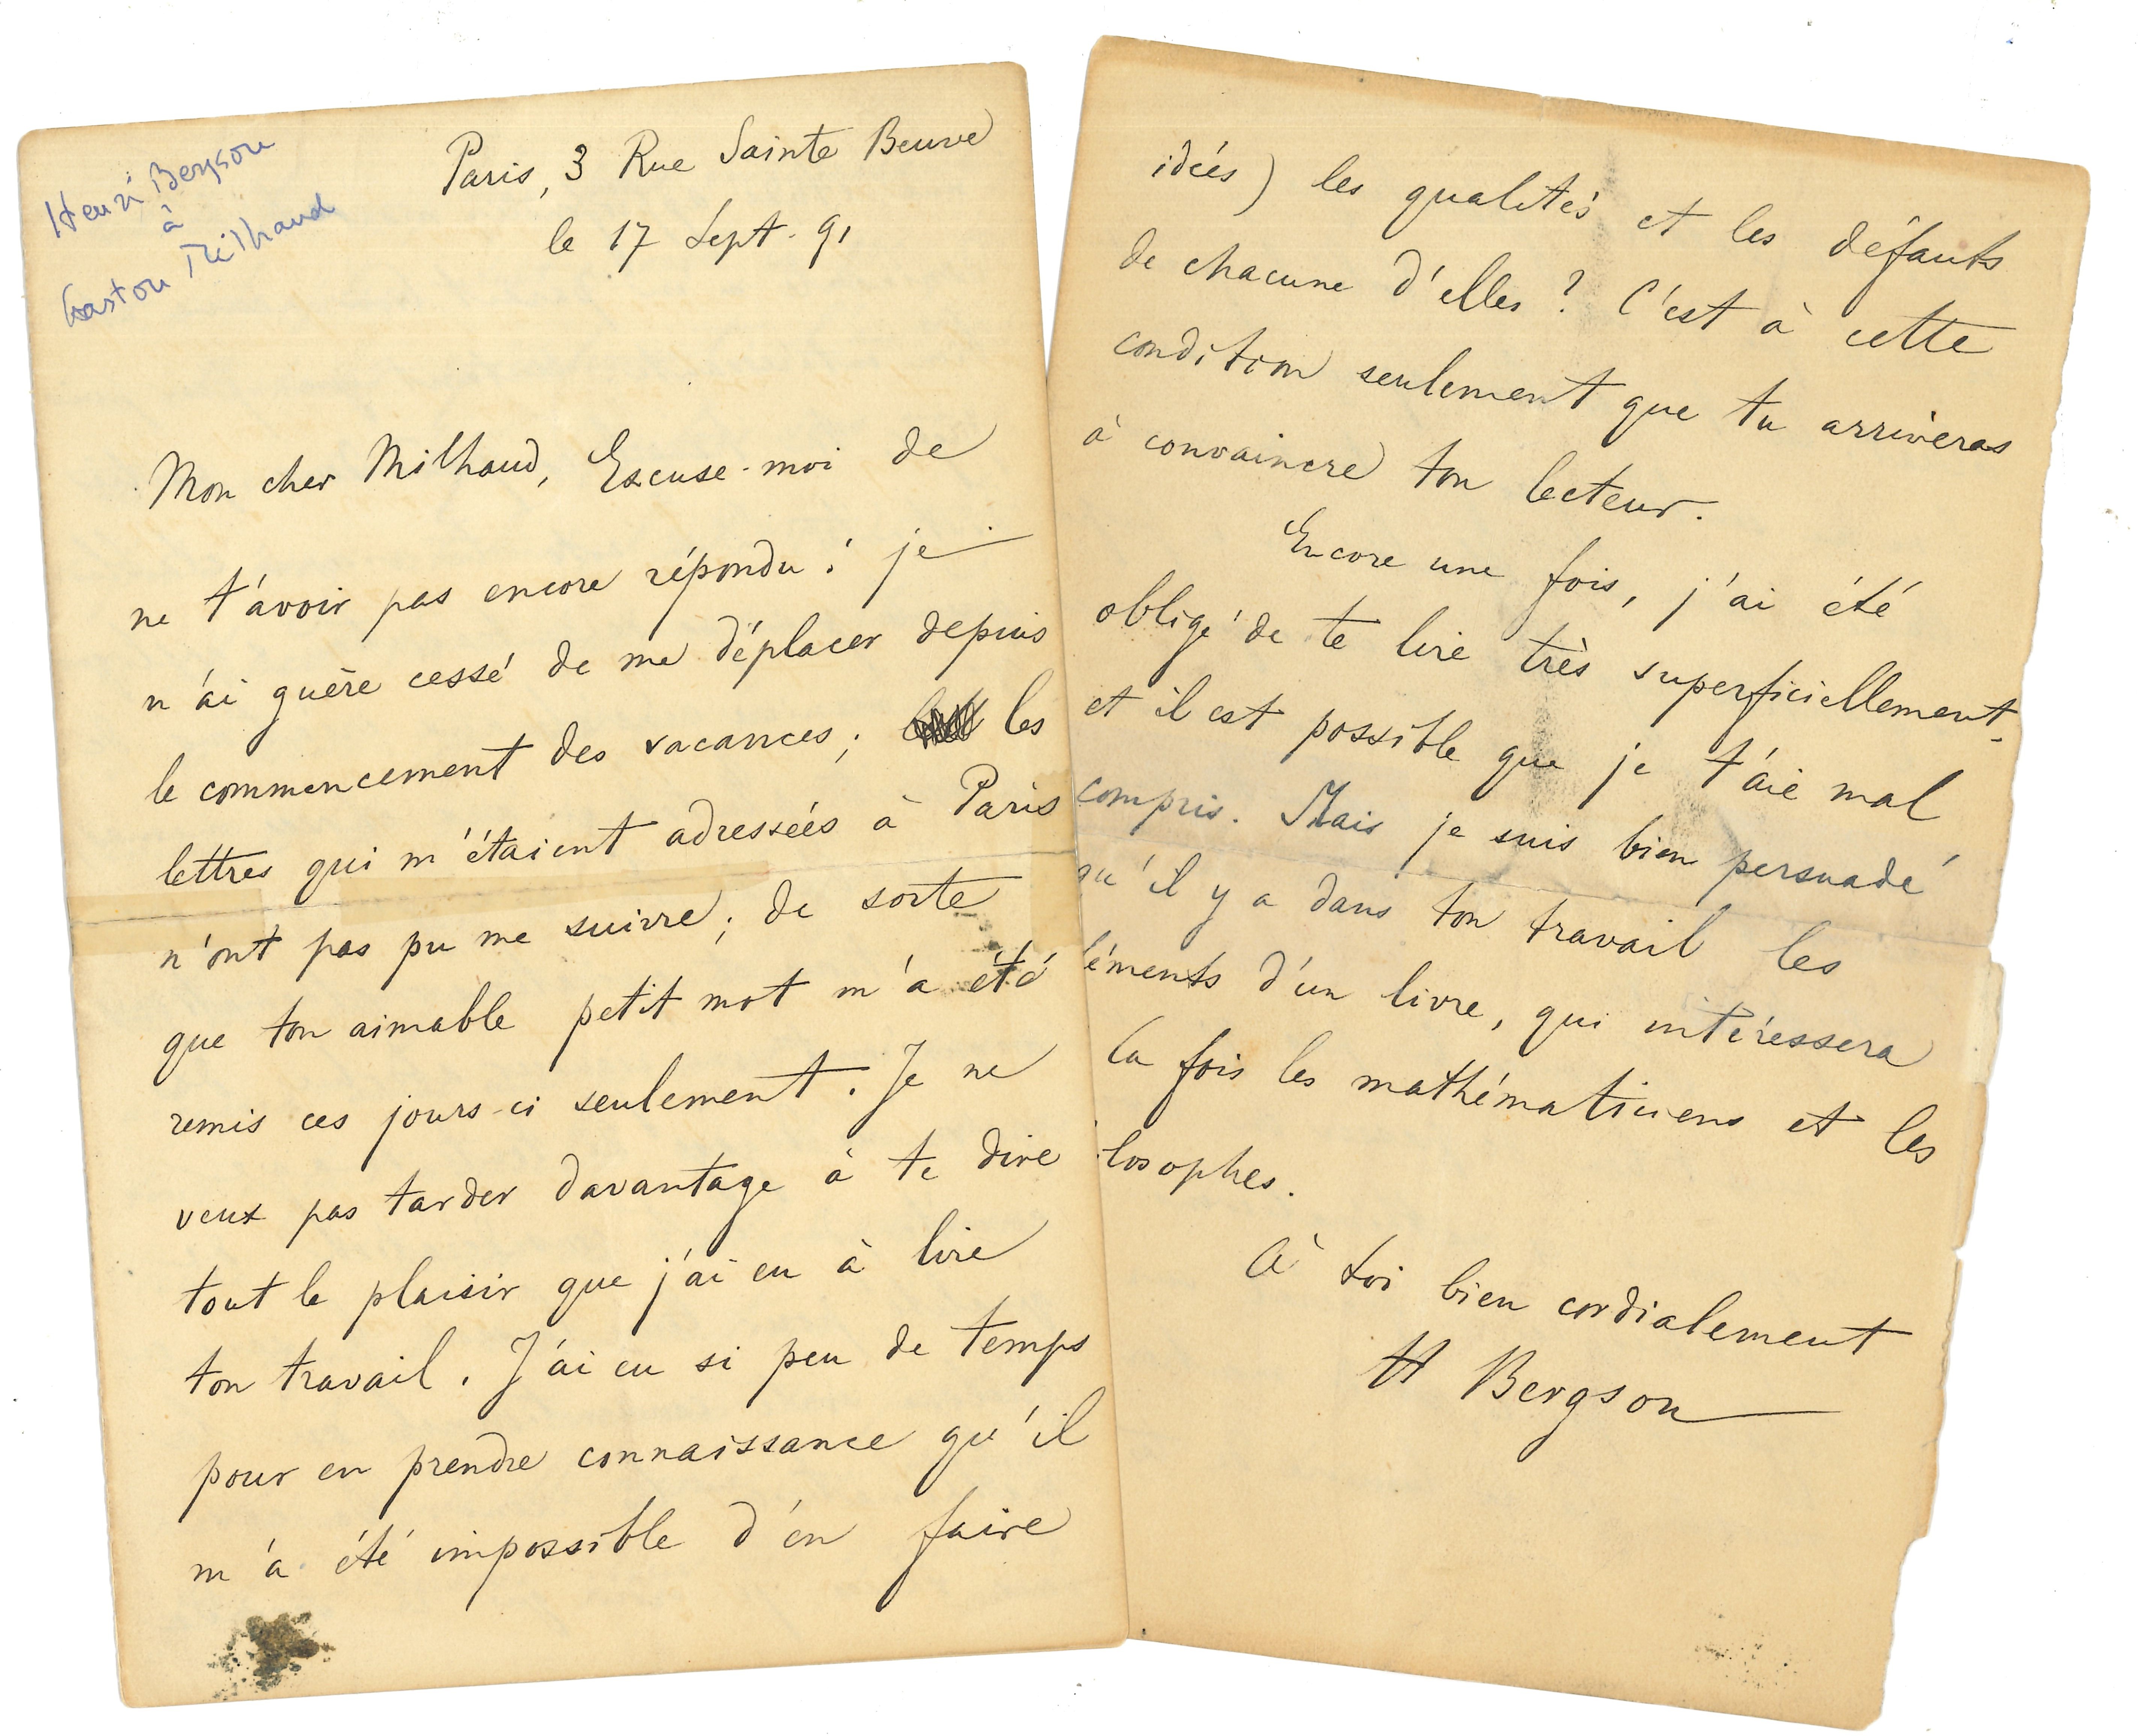 Henri Bergson
à
Gaston Milhaud
Paris, 3 Rue Sainte Beuve
le 17 Sept. 91
Mon cher Milhaud, Excuse-moi de
ne t'avoir pas encore répondu : je
n'ai guère cessé de me déplacer depuis
le commencement des vacances ; les
lettres qui m'étaient adressées à Paris
n'ont pas pu me suivre ; de sorte
que ton aimable petit mot m'a été
remis ces jours-ci seulement. Je ne
veux pas tarder davantage à te dire
tout le plaisir que j'ai eu à lire
ton travail. J'ai eu si peu de temps
pour en prendre connaissance qu'il
m'a été impossible d'en faire
idées) les qualités et les défauts
de chacune d'elles ? C'est à cette
condition seulement que tu arriveras
à convaincre ton lecteur.
Encore une fois, j'ai été
obligé de te lire très superficiellement,
et il est possible que je t'aie mal
compris. Mais je suis bien persuadé
qu'il y a dans ton travail les
léments d'un livre, qui intéressera
la fois les mathématiciens et les
losophes.
À toi bien cordialement
H Bergson